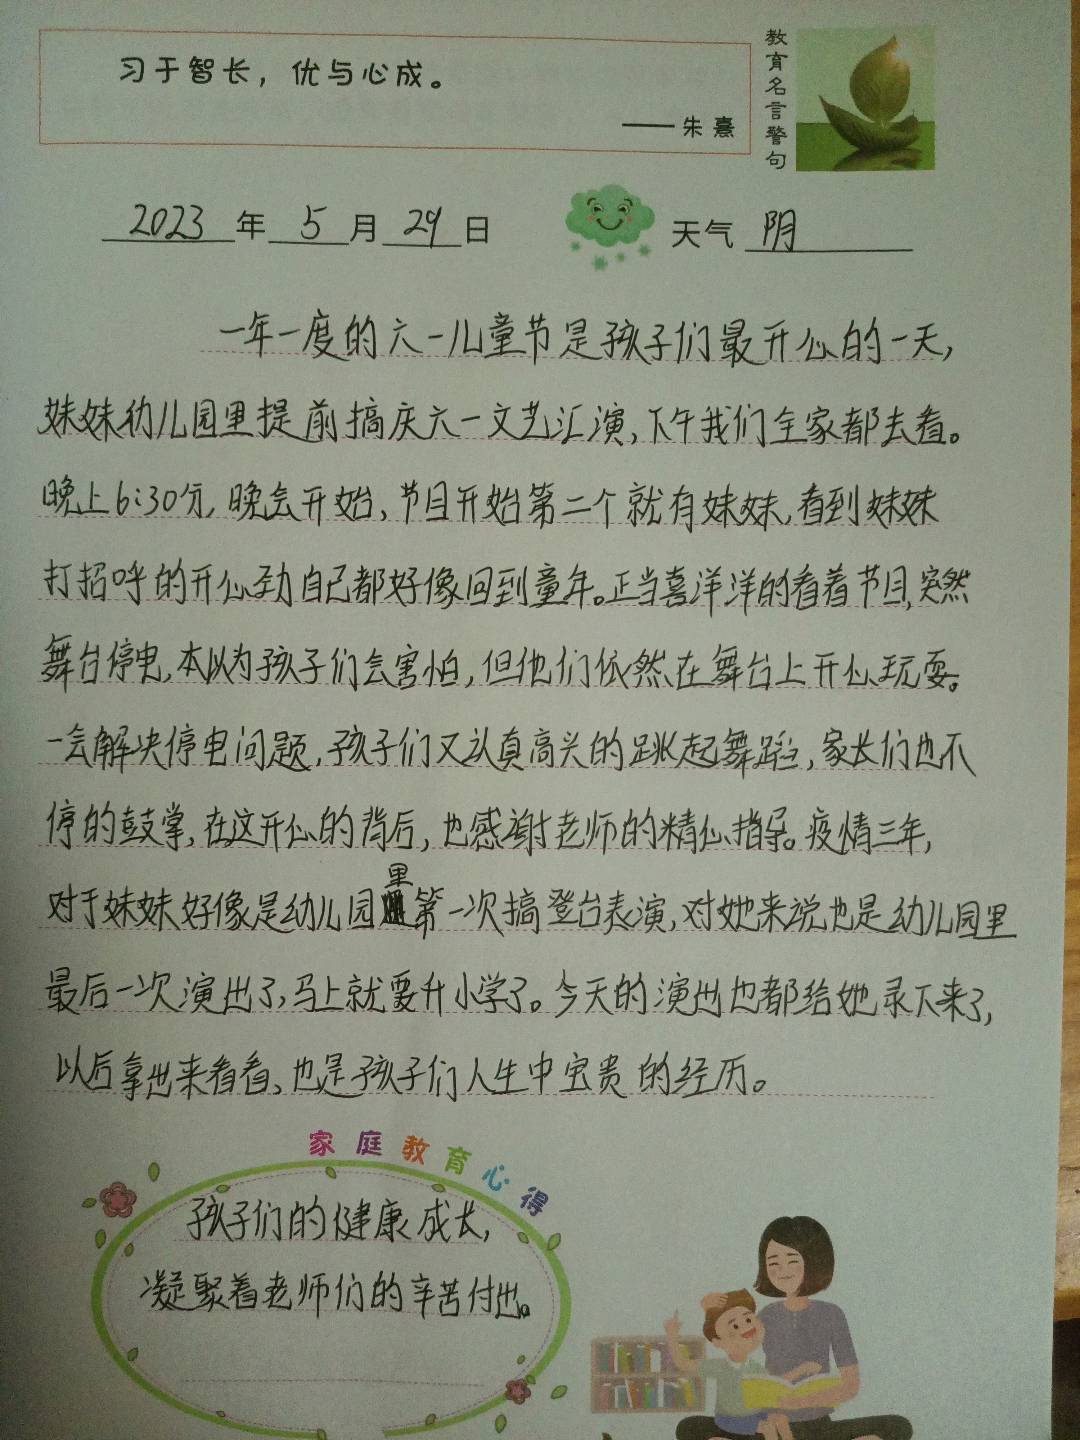 习于智长，优与心成。
——朱熹
教育名言警句
2023年5月29日
天气 阴
一年一度的六一儿童节是孩子们最开心的一天，
妹妹幼儿园里提前搞庆六一文艺汇演，下午我们全家都去看。
晚上6:30分，晚会开始，节目开始第二个就有妹妹，看到妹妹
打招呼的开心劲自己都好像回到童年。正当喜洋洋的看着节目，突然
舞台停电，本以为孩子们会害怕，但他们依然在舞台上开心玩耍。
一会解决停电问题，孩子们又认真高兴的跳起舞蹈，家长们也不
停的鼓掌，在这开心的背后，也感谢老师的精心指导。疫情三年，
对于妹妹好像是幼儿园里第一次搞登台表演，对她来说也是幼儿园里
最后一次演出了，马上就要升小学了。今天的演出也都给她录下来了，
以后拿出来看看、也是孩子们人生中宝贵的经历。
家庭教育心得
孩子们的健康成长，
凝聚着老师们的辛苦付出。